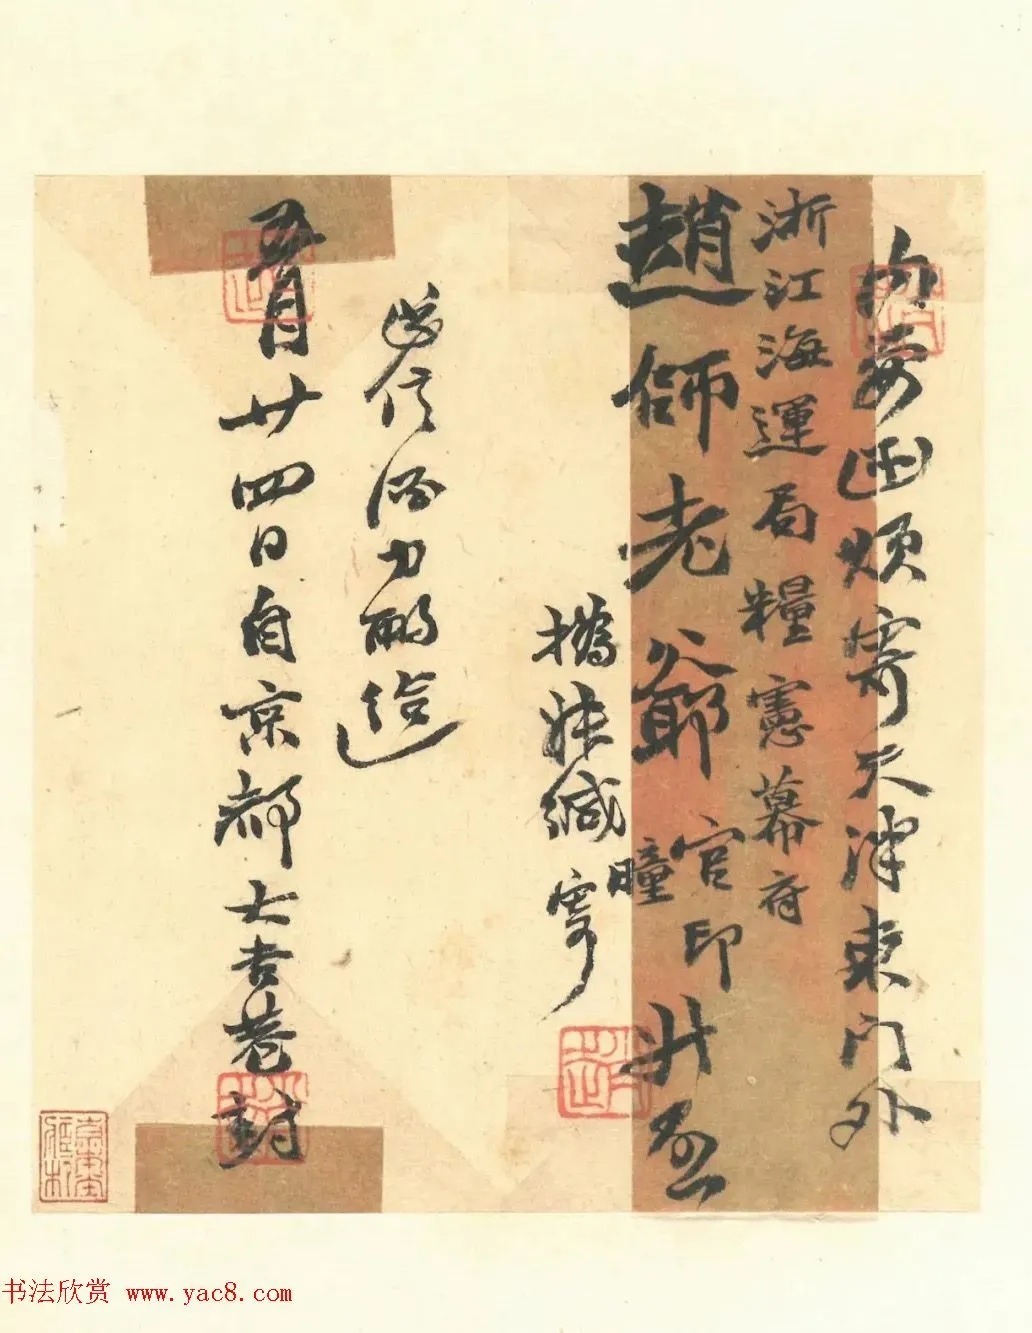 内要函煩寄天津東门外
浙江海運局糧憲幕府
趙師老爺官印瞳升啟
撝叔緘寄
信酒力酌
五月廿四日自京都大吉巷封
书法欣赏 www.yac8.com